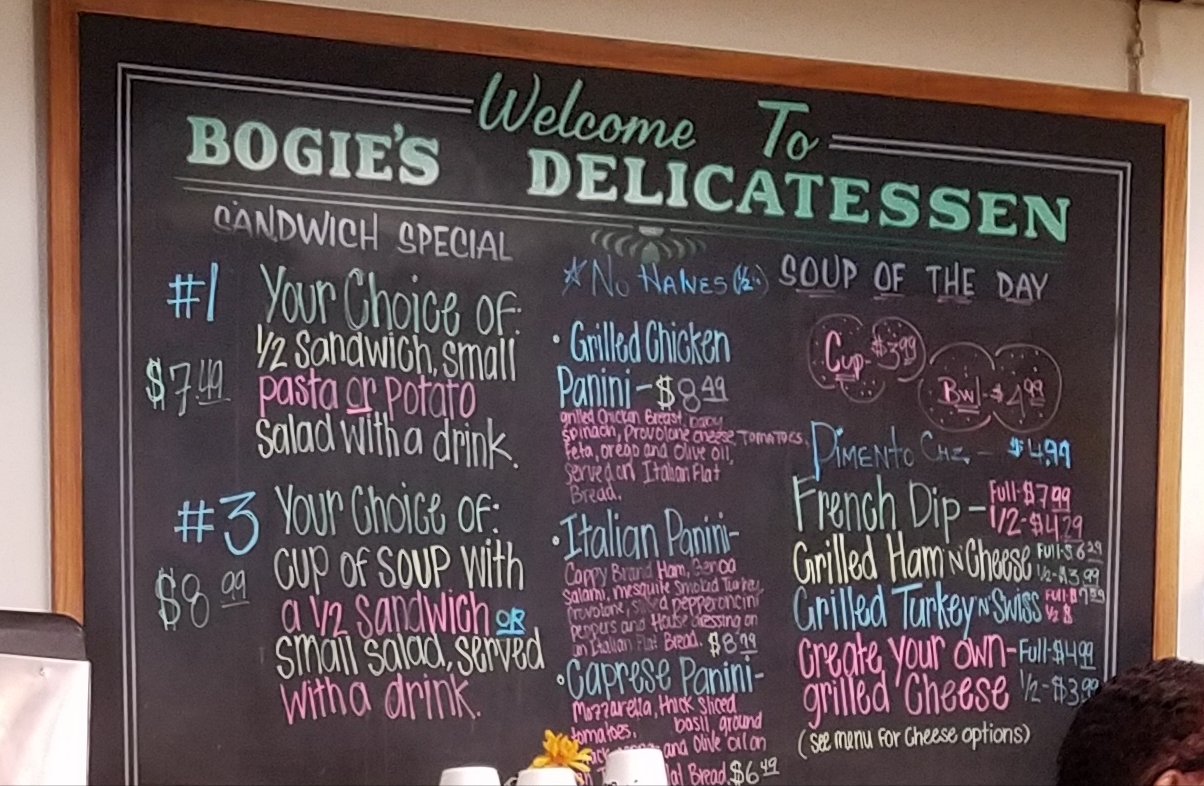 Welcome To
BOGIE'S DELICATESSEN
SANDWICH SPECIAL
#1
$7.49
Your Choice of:
1/2 Sandwich, small
pasta or potato
salad with a drink.
#3
$8.99
Your Choice of:
cup of soup with
a 1/2 sandwich or
small salad, served
with a drink.
No
• Grilled Chicken
Panini - $8.49
grilled Chicken Breast, baby
spinach, provolone cheese, TOMATOES,
feta, oregano and Olive oil,
served on Italian Flat
Bread.
• Italian Panini-
Cappy Brand Ham, Genoa
salami, mesquite smoked Turkey,
provolone, pepperoncini
peppers and House dressing on
an Italian Flat Bread. $8.79
• Caprese Panini-
Mozzarella, thick sliced
tomatoes, basil, ground
and Olive oil on
Bread. $6.49
SOUP OF THE DAY
Cup-$3.99
Bwl-$4.99
PIMENTO CHZ. - $4.99
French Dip - Full-$7.99
1/2-$4.79
Grilled Ham 'N' Cheese Full-$6.29
1/2-$3.99
Grilled Turkey 'N' Swiss Full-
1/2
create your own- Full-$4.99
grilled Cheese 1/2-$3.99
(see menu for Cheese options)